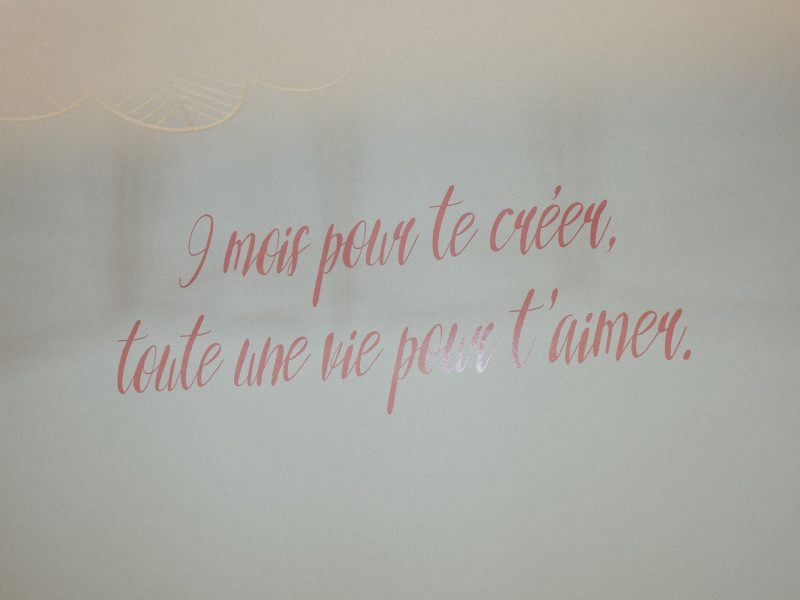 9 mois pour te créer,
toute une vie pour t'aimer.